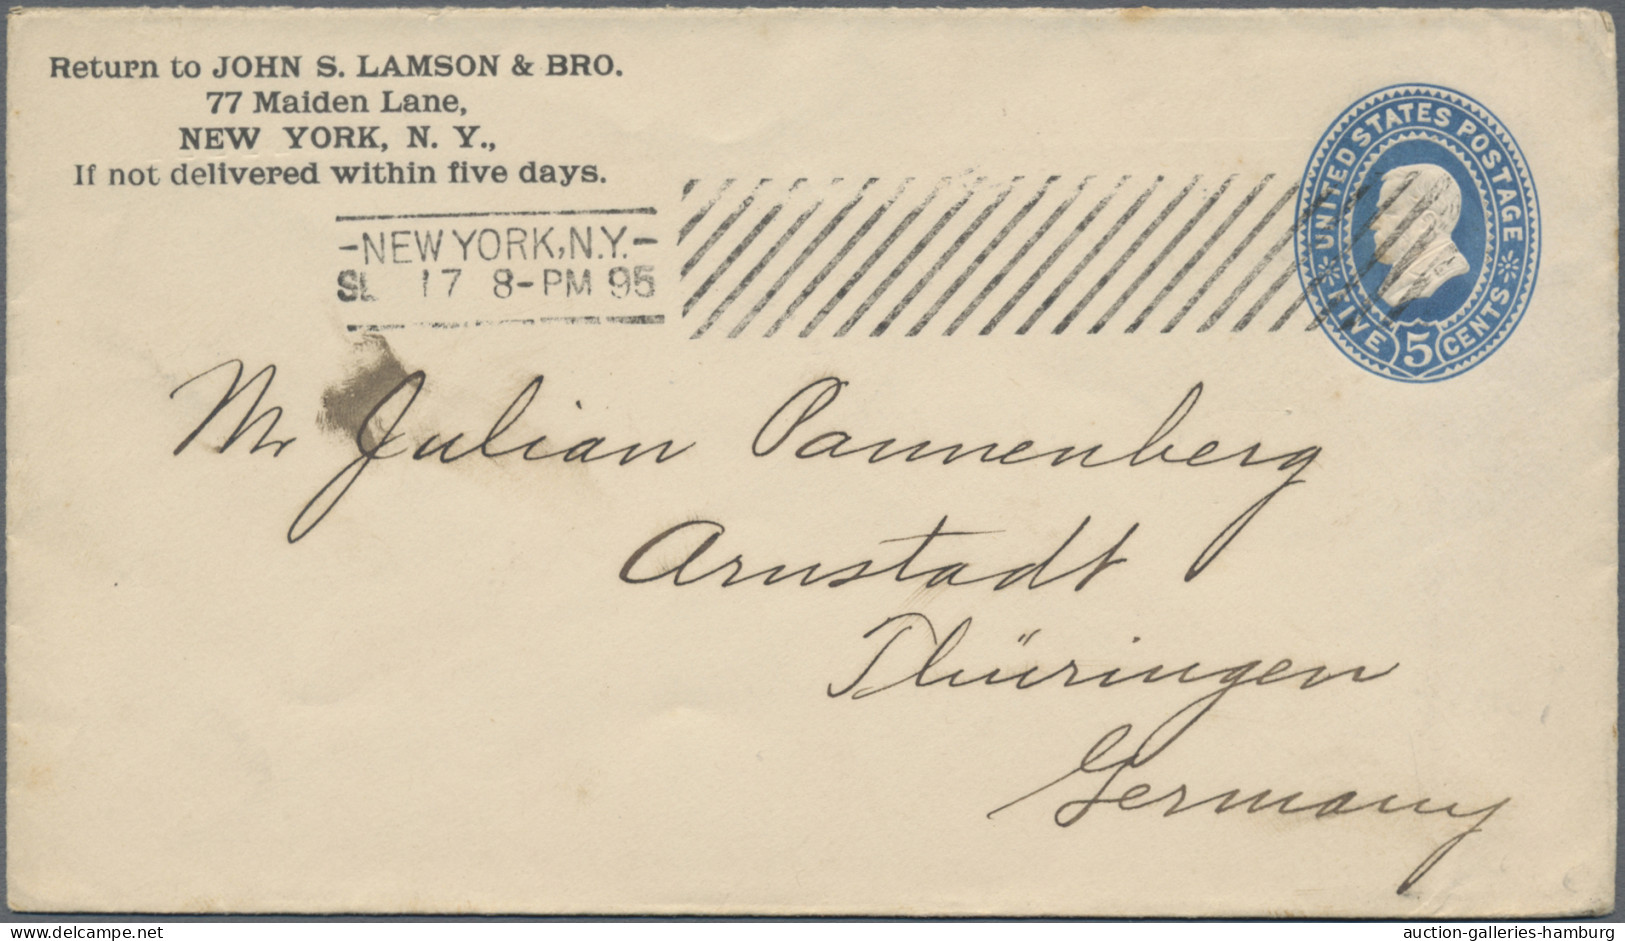 Return to JOHN S. LAMSON & BRO.
77 Maiden Lane,
NEW YORK, N. Y.,
If not delivered within five days.
-NEW YORK, N.Y.-
17 8-PM 95
UNITED STATES POSTAGE
FIVE 5 CENTS
Mr Julian Pannenberg
Arnstadt
Thüringen
Germany
www.delcampe.net
auction-galleries-hamburg